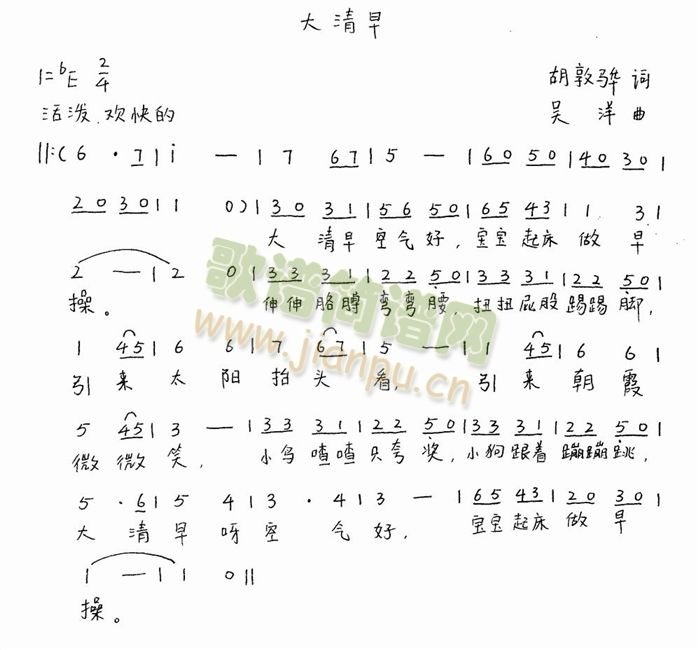 大清早
1=ᵇE 2/4
胡敦骅 词
活泼、欢快的
吴 洋 曲
‖:( 6 · 7 | i — | 7 67 | 5 — | 60 50 | 40 30 |
20 30 | 1 0 ) | 30 31 | 56 50 | 65 43 | 1 . 3 |
大 清早 空气好，宝宝 起床 做 早
2 — | 2 0 | 33 31 | 22 50 | 33 31 | 22 50 |
操。 伸伸胳膊弯弯腰，扭扭屁股踢踢脚，
1 45 | 6 6 | 7 67 | 5 — | 1 45 | 6 6 |
引来太阳抬头看，引来朝霞
5 45 | 3 — | 33 31 | 22 50 | 33 31 | 22 50 |
微微笑，小鸟喳喳只夸奖，小狗跟着蹦蹦跳，
5 · 6 | 5 4 | 3 · 4 | 3 — | 65 43 | 20 30 |
大清早呀空气好，宝宝起床做早
1 — | 1 0 ‖
操。
歌谱简谱网
www.jianpu.cn